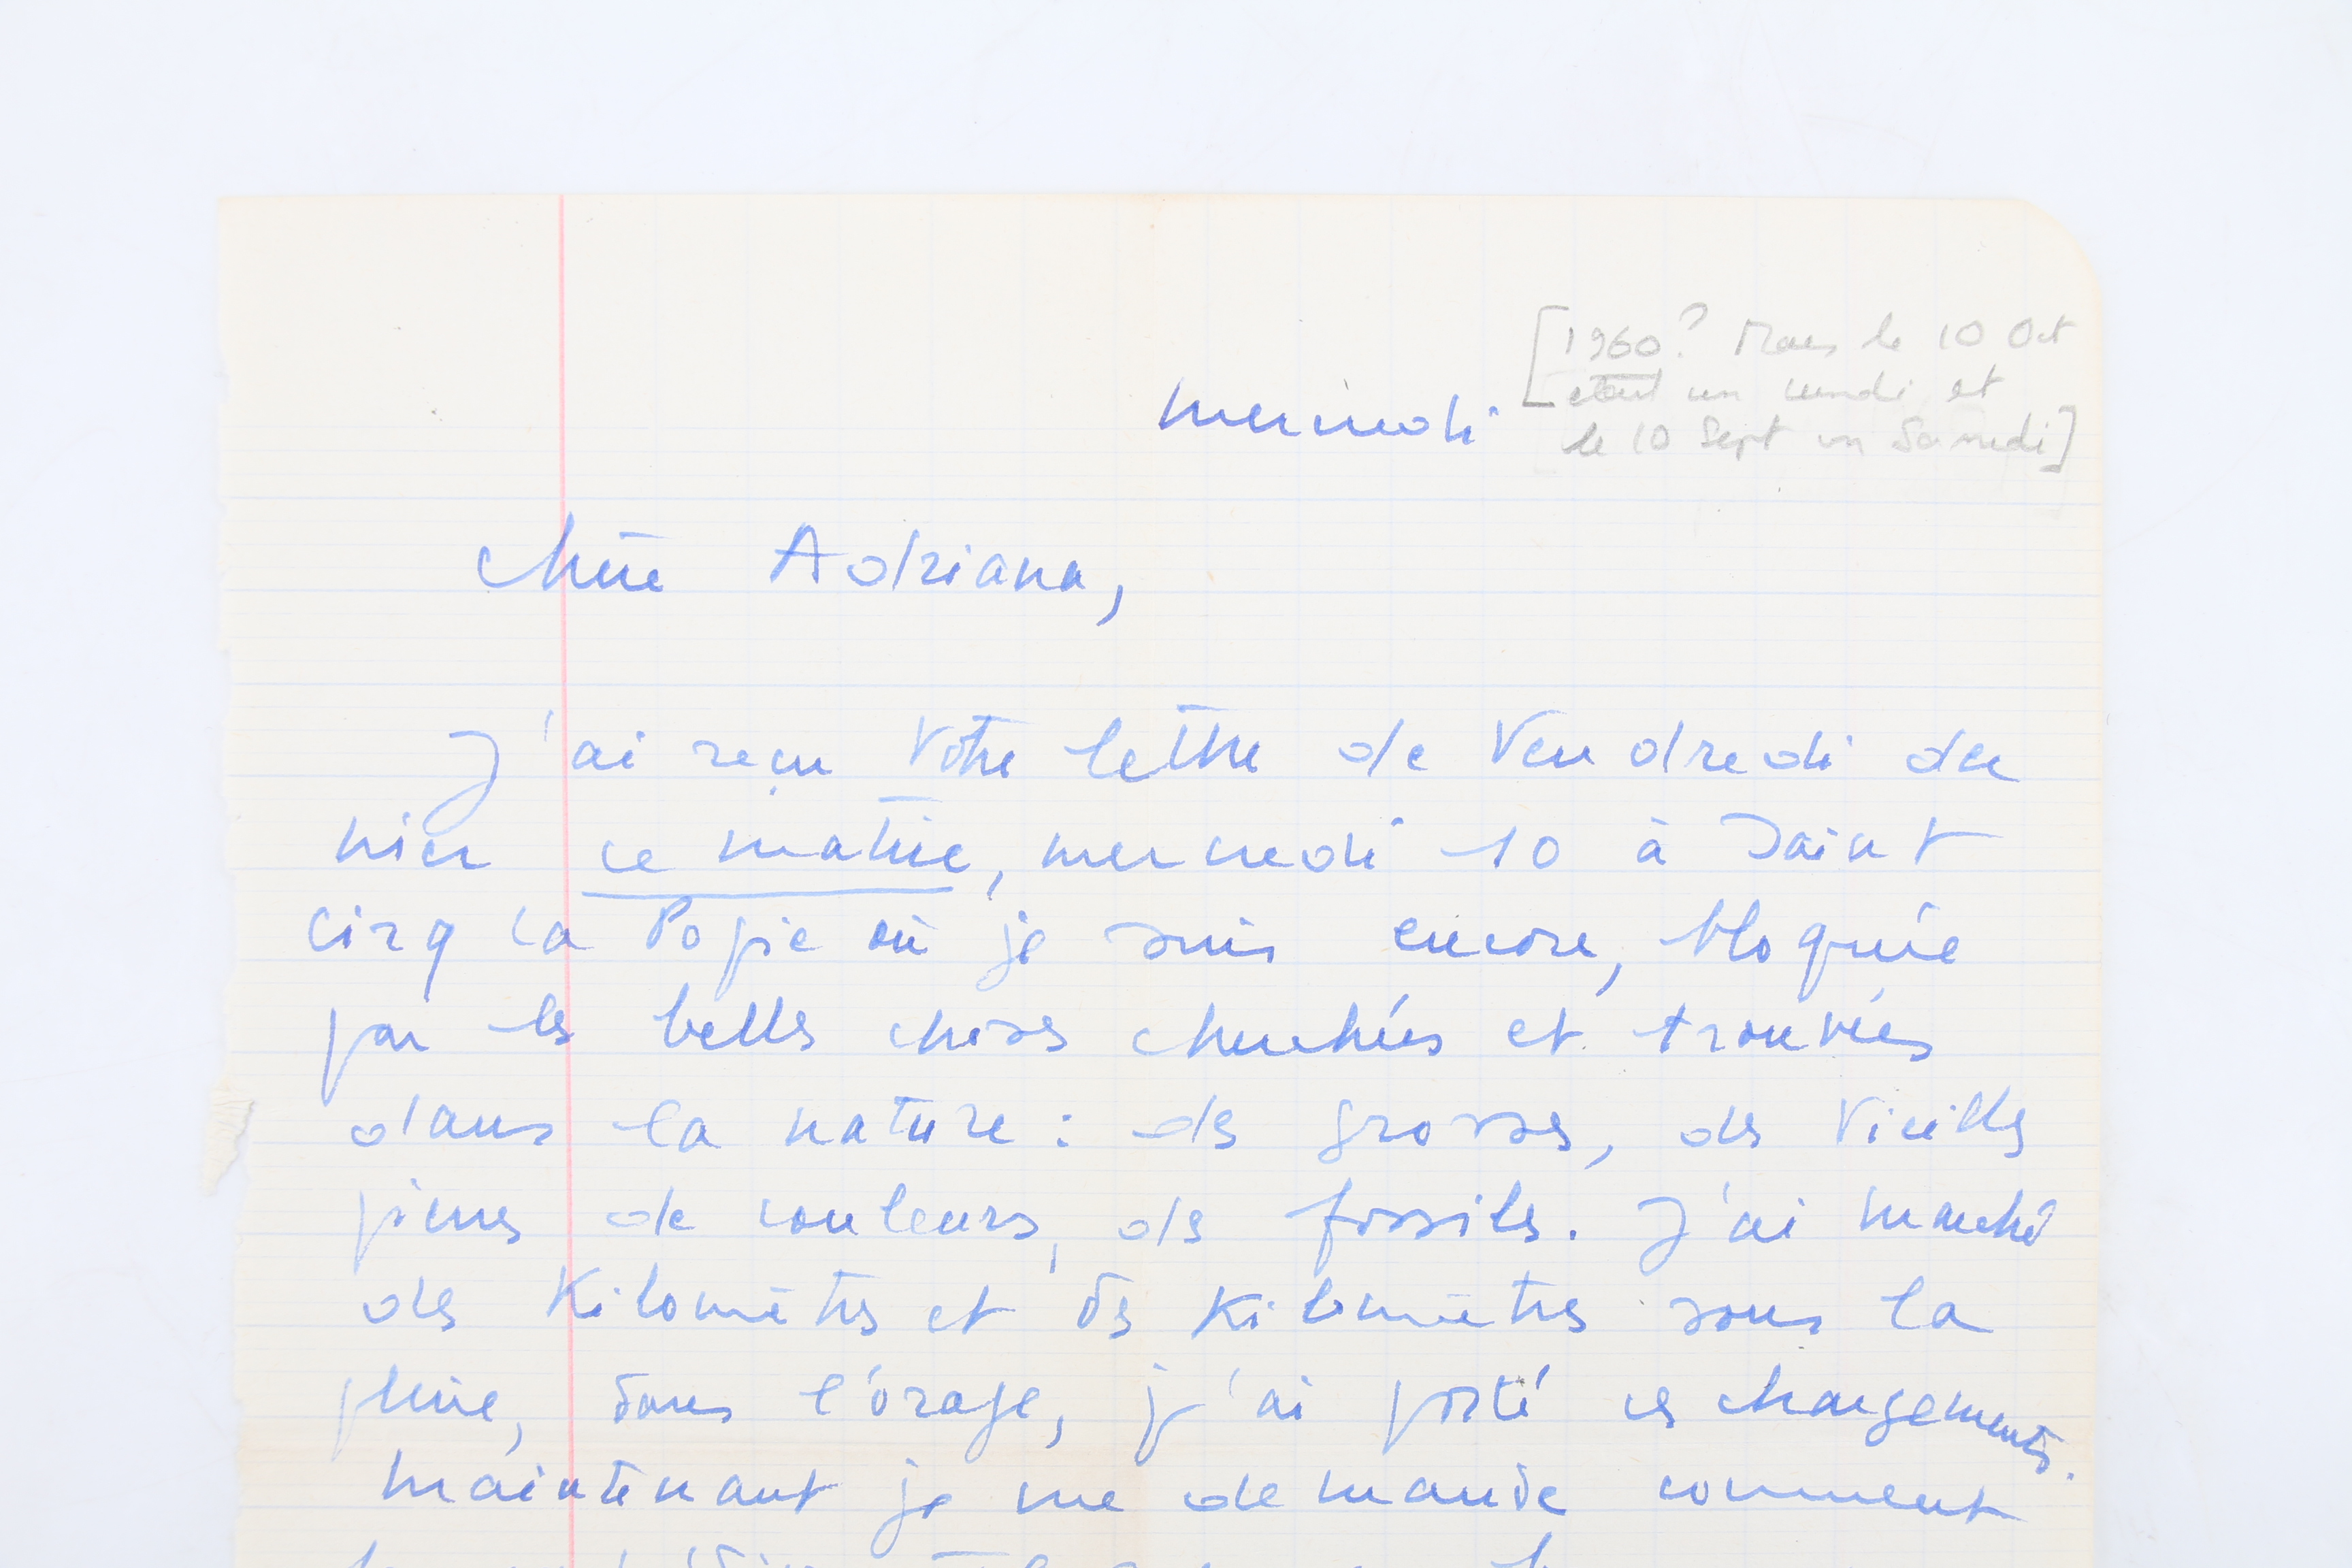 [1960? Mais le 10 Oct
était un lundi et
le 10 Sept un Samedi]
mercredi
Chère Adriana,
J'ai reçu votre lettre de Vendredi der
nier ce matin, mercredi 10 à Saint
Cirq la Popie où je suis encore, bloquée
par les belles choses cherchées et trouvées
dans la nature : des grosses, des vieilles
pierres de couleurs, des fossiles. J'ai marché
des Kilomètres et des Kilomètres sous la
pluie, dans l'orage, j'ai porté ces chargements.
maintenant je me demande comment